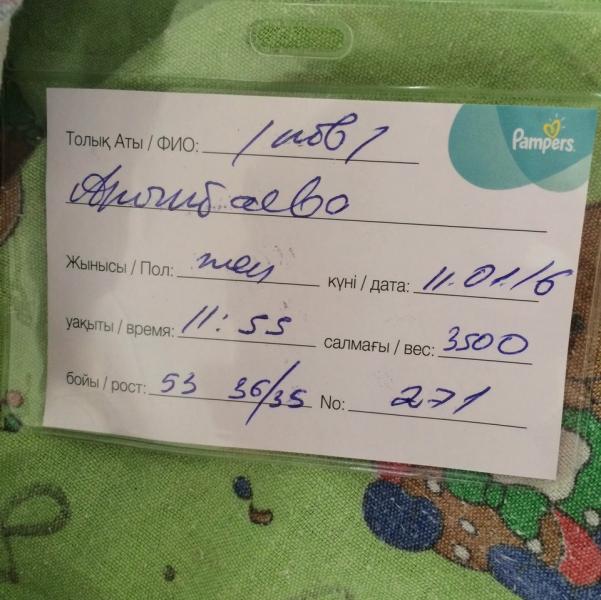 Pampers
Толық Аты / ФИО:
Жынысы / Пол: жен күні / дата: 11.01.16
уақыты / время: 11:55 салмағы / вес: 3500
бойы / рост: 53 36/35 No: 271